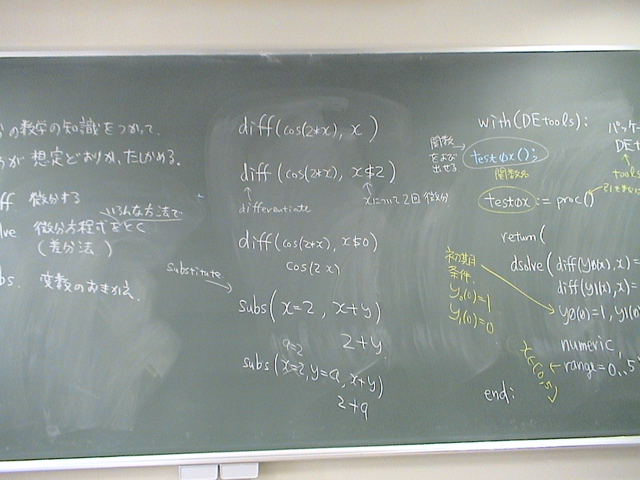 の数学の知識をつかって、
が 想定どおりか、たしかめる.
ff 微分する
いろんな方法で
lve 微分方程式をとく
(差分法)
bs. 変数のおきかえ
diff(cos(2*x), x)
diff(cos(2*x), x$2)
differentiate
xについて2回微分
diff(cos(2*x), x$0)
cos(2x)
substitute
subs(x=2, x+y)
2+y
a=2
subs(x=2, y=a, x+y)
2+a
with(DEtools):
関数
をよび
出せる
test0x();
関数名
test0x := proc()
return(
dsolve(diff(y0(x),x)=
diff(y1(x),x)=
y0(0)=1, y1(0)
numeric,
range=0..5
end:
初期
条件.
y0(0)=1
y1(0)=0
パッケー
DEt
tools